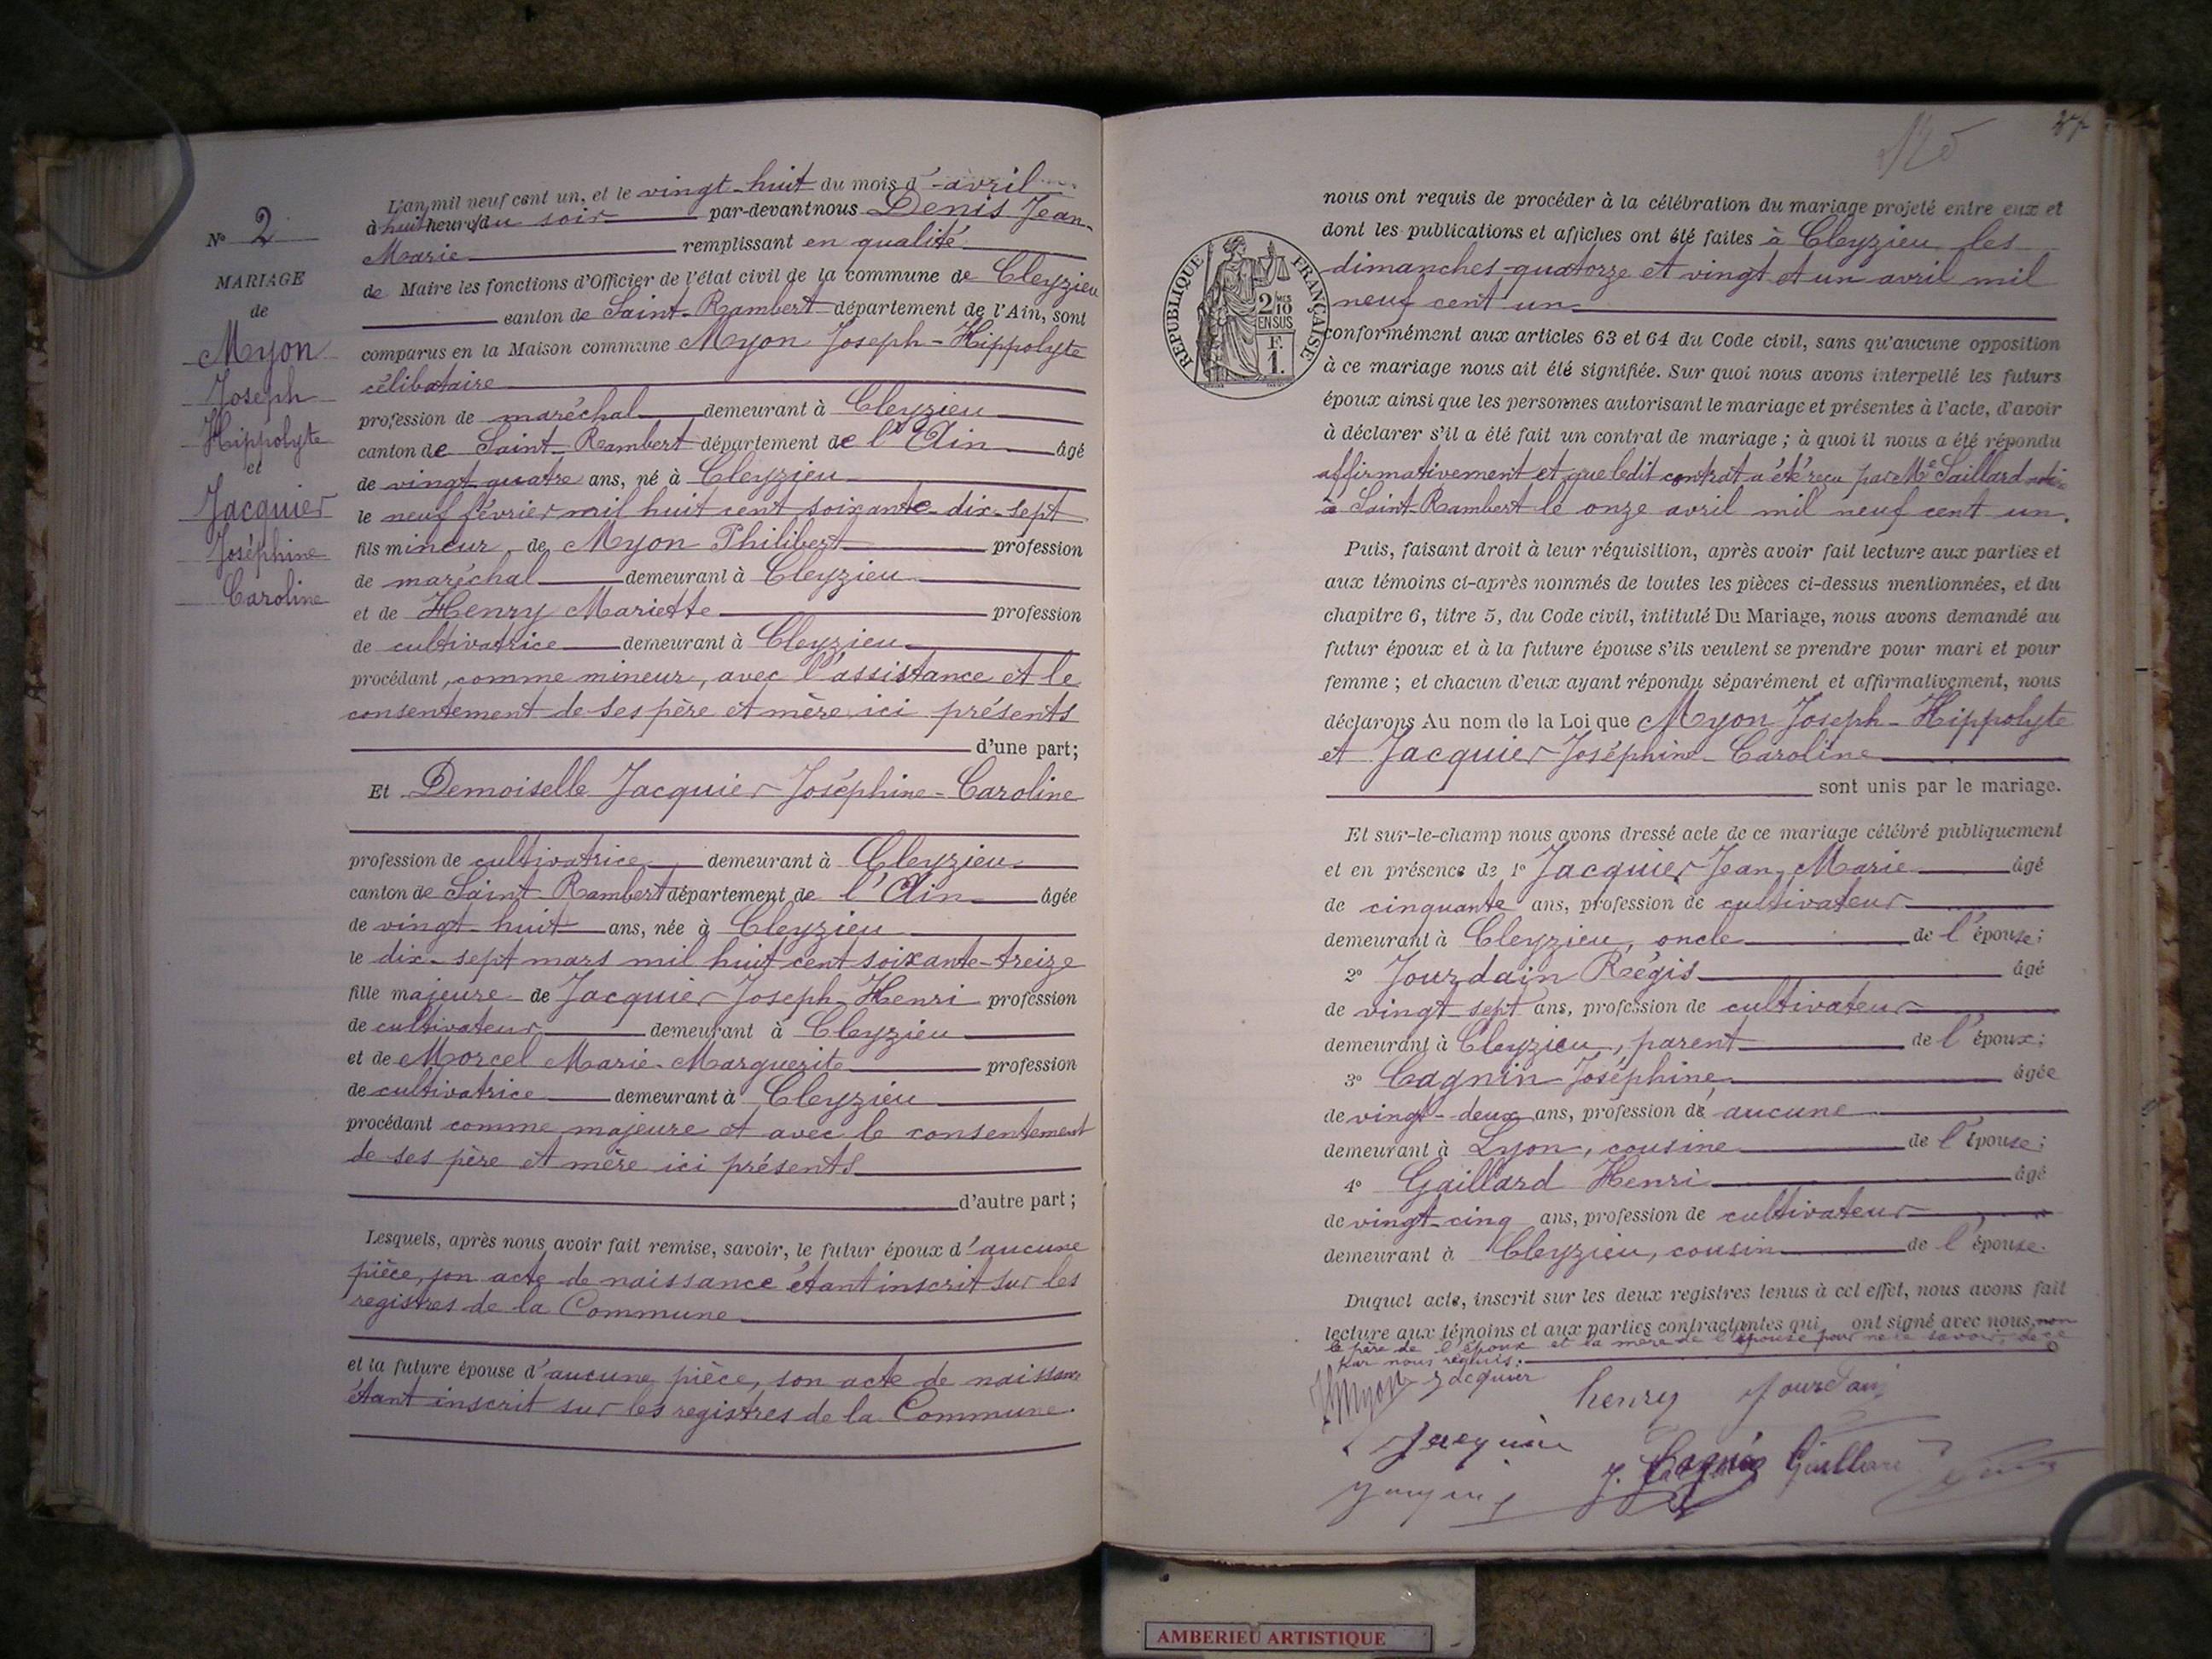 N° 2
MARIAGE
de
Myon
Joseph
Hippolyte
et
Jacquier
Joséphine
Caroline
L'an mil neuf cent un, et le vingt-huit du mois d'avril
à huit heures du soir par-devant nous Denis Jean-
Marie remplissant en qualité
de Maire les fonctions d'Officier de l'état civil de la commune de Cleyzieu
canton de Saint-Rambert département de l'Ain, sont
comparus en la Maison commune Myon Joseph-Hippolyte
célibataire
profession de maréchal demeurant à Cleyzieu
canton de Saint-Rambert département de l'Ain âgé
de vingt-quatre ans, né à Cleyzieu
le neuf février mil huit cent soixante-dix-sept
fils mineur de Myon Philibert profession
de maréchal demeurant à Cleyzieu
et de Henry Mariette profession
de cultivatrice demeurant à Cleyzieu
procédant, comme mineur, avec l'assistance et le
consentement de ses père et mère ici présents
d'une part;
Et Demoiselle Jacquier Joséphine-Caroline
profession de cultivatrice demeurant à Cleyzieu
canton de Saint-Rambert département de l'Ain âgée
de vingt-huit ans, née à Cleyzieu
le dix-sept mars mil huit cent soixante-treize
fille majeure de Jacquier Joseph-Henri profession
de cultivateur demeurant à Cleyzieu
et de Morcel Marie-Marguerite profession
de cultivatrice demeurant à Cleyzieu
procédant comme majeure et avec le consentement
de ses père et mère ici présents
d'autre part;
Lesquels, après nous avoir fait remise, savoir, le futur époux d'aucune
pièce, son acte de naissance étant inscrit sur les
registres de la Commune
et la future épouse d'aucune pièce, son acte de naissance
étant inscrit sur les registres de la Commune.
REPUBLIQUE FRANÇAISE
2 MES
10
EN SUS
F.
1.
nous ont requis de procéder à la célébration du mariage projeté entre eux et
dont les publications et affiches ont été faites à Cleyzieu les
dimanches quatorze et vingt et un avril mil
neuf cent un
conformément aux articles 63 et 64 du Code civil, sans qu'aucune opposition
à ce mariage nous ait été signifiée. Sur quoi nous avons interpellé les futurs
époux ainsi que les personnes autorisant le mariage et présentes à l'acte, d'avoir
à déclarer s'il a été fait un contrat de mariage; à quoi il nous a été répondu
affirmativement et que ledit contrat a été reçu par Me Saillard
à Saint-Rambert le onze avril mil neuf cent un.
Puis, faisant droit à leur réquisition, après avoir fait lecture aux parties et
aux témoins ci-après nommés de toutes les pièces ci-dessus mentionnées, et du
chapitre 6, titre 5, du Code civil, intitulé Du Mariage, nous avons demandé au
futur époux et à la future épouse s'ils veulent se prendre pour mari et pour
femme; et chacun d'eux ayant répondu séparément et affirmativement, nous
déclarons Au nom de la Loi que Myon Joseph-Hippolyte
et Jacquier Joséphine-Caroline
sont unis par le mariage.
Et sur-le-champ nous avons dressé acte de ce mariage célébré publiquement
et en présence de 1° Jacquier Jean-Marie âgé
de cinquante ans, profession de cultivateur
demeurant à Cleyzieu, oncle de l'épouse;
2° Jourdain Régis âgé
de vingt-sept ans, profession de cultivateur
demeurant à Cleyzieu, parent de l'époux;
3° Cagnin Joséphine âgée
de vingt-deux ans, profession de aucune
demeurant à Lyon, cousine de l'épouse;
4° Gaillard Henri âgé
de vingt-cinq ans, profession de cultivateur
demeurant à Cleyzieu, cousin de l'épouse.
Duquel acte, inscrit sur les deux registres tenus à cet effet, nous avons fait
lecture aux témoins et aux parties contractantes qui ont signé avec nous, non
le père de l'époux et la mère de l'épouse pour ne le savoir, de ce
par nous requis.
JHMyon Jacquier henry Jourdain
Jacquier
J. Cagnin Gaillard
AMBERIEU ARTISTIQUE